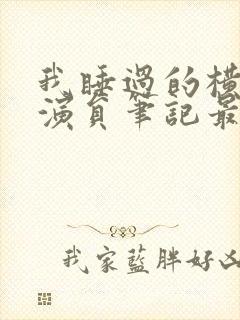 我睡過的橫
演員筆記最
我家藍胖好凶